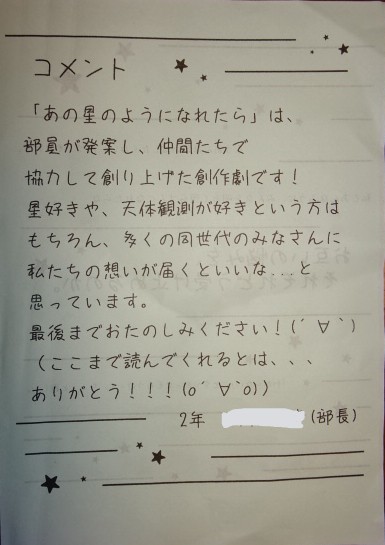 コメント
「あの星のようになれたら」は、
部員が発案し、仲間たちで
協力して創り上げた創作劇です！
星好きや、天体観測が好きという方は
もちろん、多くの同世代のみなさんに
私たちの想いが届くといいな...と
思っています。
最後までおたのしみください！(´∀`)
(ここまで読んでくれるとは、、、
ありがとう！！！(o´∀`o))
2年 (部長)